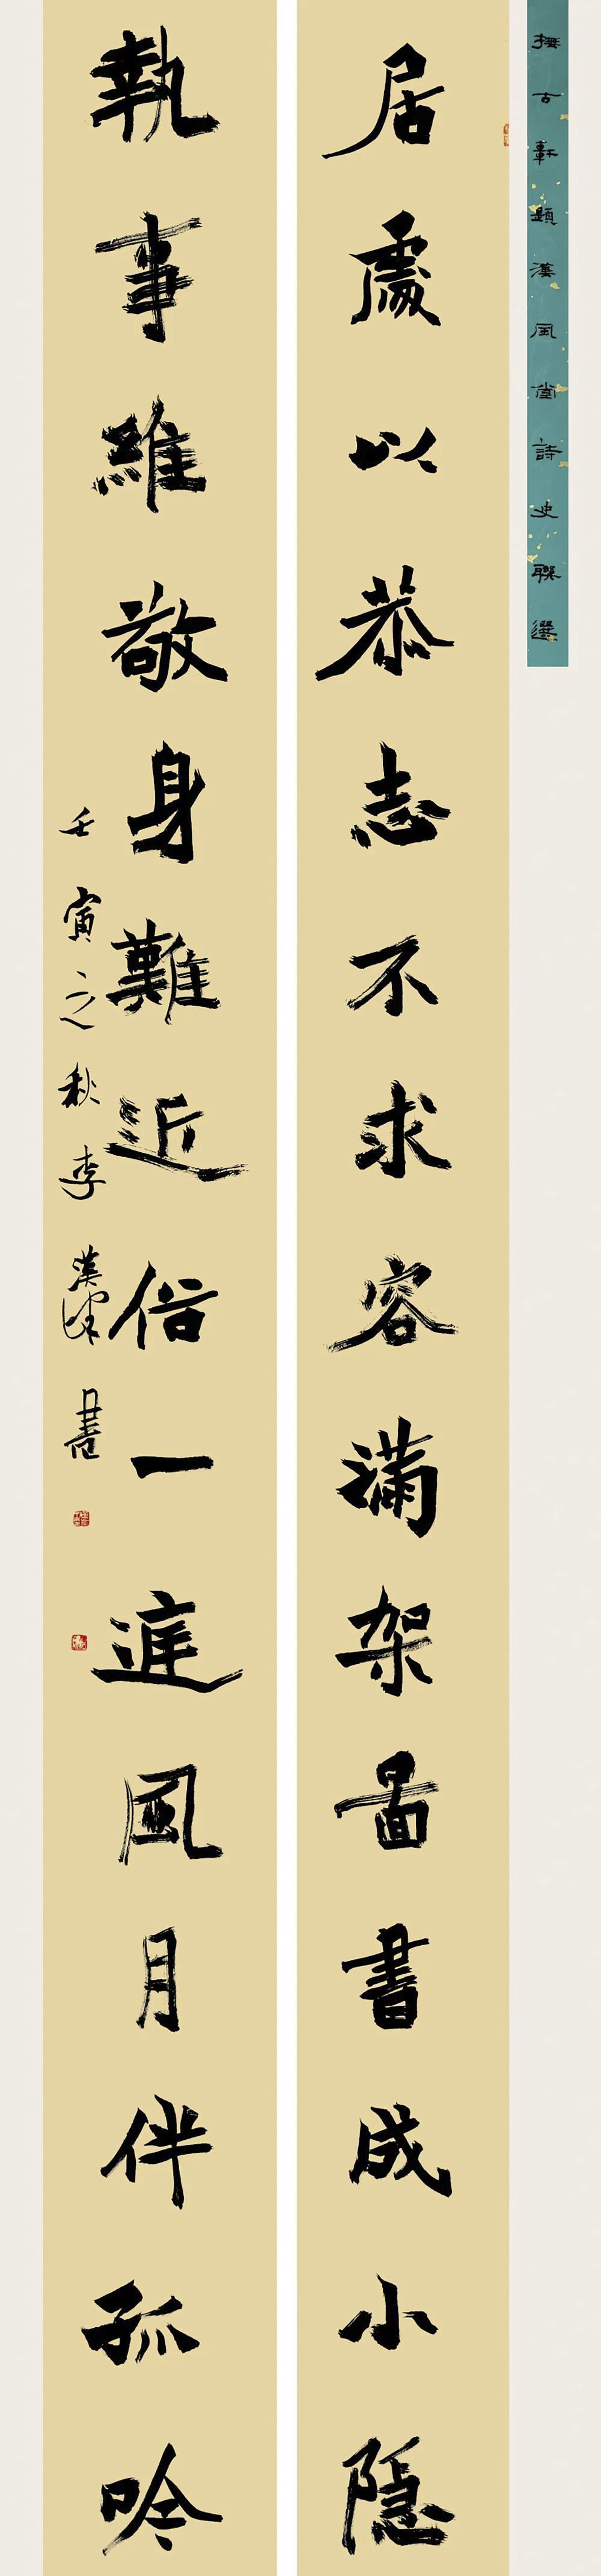 撫古軒題漢風堂詩史聯選
居處以恭志不求容滿架圖書成小隱
執事維敬身難近俗一庭風月伴孤吟
壬寅之秋李漢
書